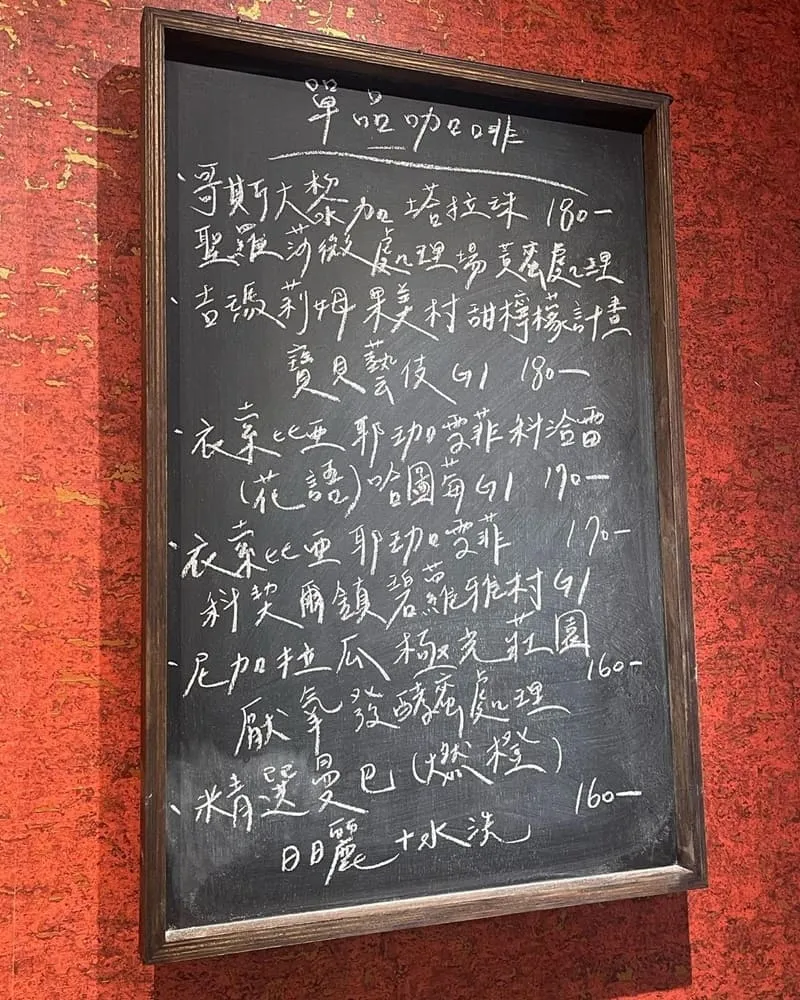 單品咖啡
、哥斯大黎加 塔拉珠 180-
聖羅莎微處理場黃蜜處理
、吉瑪莉姆果美村甜檸檬計畫
寶貝藝伎G1 180-
、衣索比亞耶珈雪菲科洽雷
(花語)哈圖莓G1 170-
、衣索比亞耶珈雪菲 170-
科契爾鎮碧蘿雅村G1
、尼加拉瓜極光莊園
160-
厭氧發酵蜜處理
、精選曼巴(燃橙)
160-
日曬+水洗